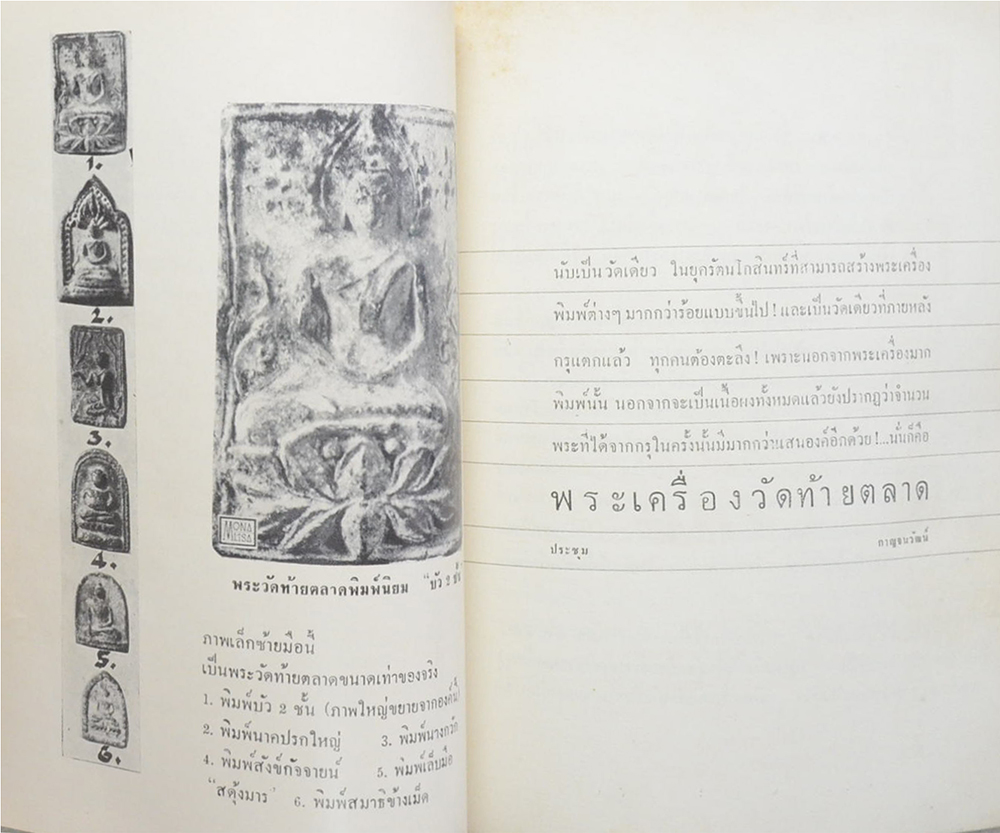 1.
2.
3.
4.
5.
6.
MONA
MLISA
พระวัดท้ายตลาดพิมพ์นิยม "บัว ๒
ภาพเล็กซ้ายมือนี้
เป็นพระวัดท้ายตลาดขนาดเท่าของจริง
1. พิมพ์บัว 2 ชั้น (ภาพใหญ่ขยายจากองค์นี้)
2. พิมพ์นาคปรกใหญ่ 3. พิมพ์นางกวัก
4. พิมพ์สังข์กัจจายน์ 5. พิมพ์เล็บมือ
"สดุ้งมาร' 6. พิมพ์สมาธิข้างเม็ด
นับเป็นวัดเดียว ในยุครัตนโกสินทร์ที่สามารถสร้างพระเครื่อง
พิมพ์ต่างๆ มากกว่าร้อยแบบขึ้นไป! และเป็นวัดเดียวที่ภายหลัง
กรุแตกแล้ว ทุกคนต้องตะลึง! เพราะนอกจากพระเครื่องมาก
พิมพ์นั้น นอกจากจะเป็นเนื้อผงทั้งหมดแล้วยังปรากฏว่าจำนวน
พระที่ได้จากกรุในครั้งนั้นมีมากกว่าแสนองค์อีกด้วย!...นั่นก็คือ
พระเครื่องวัดท้ายตลาด
ประชุม กาญจนวัฒน์